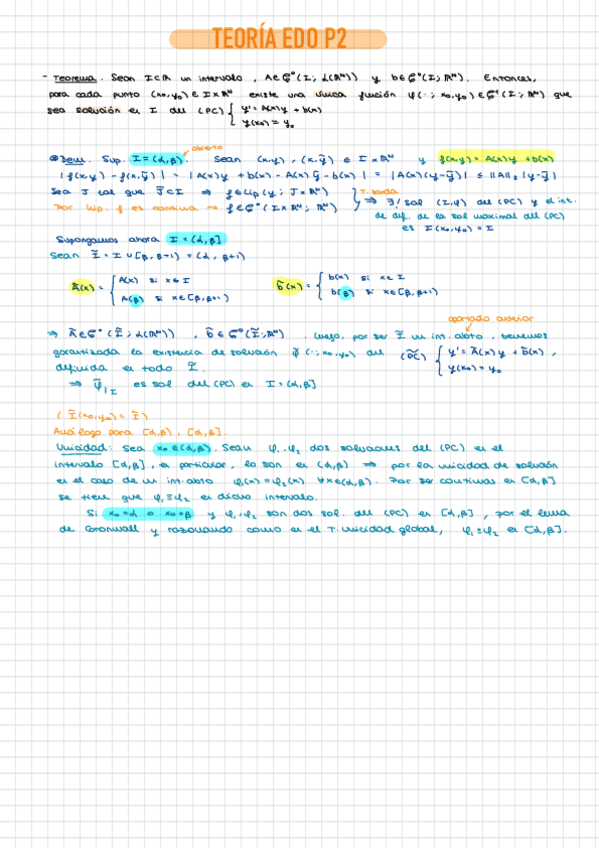 TEORÍA EDO P2
- Teorema. Sean I⊂ℝ un intervalo, A∈𝒞⁰(I; ℒ(ℝᴺ)) y b∈𝒞⁰(I; ℝᴺ). Entonces,
para cada punto (x₀,y₀) ∈ I×ℝᴺ existe una única función φ(·; x₀,y₀) ∈ 𝒞¹(I; ℝᴺ) que
sea solución en I del (PC) { y' = A(x)y + b(x)
y(x₀) = y₀
abierto
Dem. Sup. I = (α,β). Sean (x,y), (x,ỹ) ∈ I×ℝᴺ y f(x,y) = A(x)y + b(x)
|f(x,y) - f(x,ỹ)| = |A(x)y + b(x) - A(x)ỹ - b(x)| = |A(x)(y-ỹ)| ≤ ||A|| |y-ỹ|
Sea J tal que J̄⊂I ⇒ f∈Lip(y; J×ℝᴺ)
Por hip. f es continua ⇝ f∈𝒞⁰(I×ℝᴺ; ℝᴺ)
⇒ ∃! sol (I,φ) del (PC) y el int.
de dif. de la sol maximal del (PC)
es I(x₀,y₀) = I
Supongamos ahora I = (α,β]
Sean Ĩ = I ∪ [β, β+1) = (α, β+1)
Ã(x) = { A(x) si x∈I
A(β) si x∈[β,β+1)
b̃(x) = { b(x) si x∈I
b(β) si x∈[β,β+1)
apartado anterior
⇒ Ã∈𝒞⁰(Ĩ; ℒ(ℝᴺ)), b̃∈𝒞⁰(Ĩ; ℝᴺ) Luego, por ser Ĩ un int. abto, tenemos
garantizada la existencia de solución φ̃(·; x₀,y₀) del (P̃C) { y' = Ã(x)y + b̃(x),
y(x₀) = y₀
definida en todo Ĩ.
⇒ φ̃|I es sol del (PC) en I = (α,β]
(Ĩ(x₀,y₀) = Ĩ)
Análogo para [α,β), [α,β].
Unicidad: Sea x₀∈(α,β). Sean φ₁, φ₂ dos soluciones del (PC) en el
intervalo [α,β], en particular, lo son en (α,β) ⇒ por la unicidad de solución
en el caso de un int. abto φ₁(x) = φ₂(x) ∀x∈(α,β). Por ser continuas en [α,β]
se tiene que φ₁≡φ₂ en dicho intervalo.
Si x₀=α o x₀=β y φ₁,φ₂ son dos sol. del (PC) en [α,β], por el lema
de Gronwall y razonando como en el T. unicidad global, φ₁≡φ₂ en [α,β].